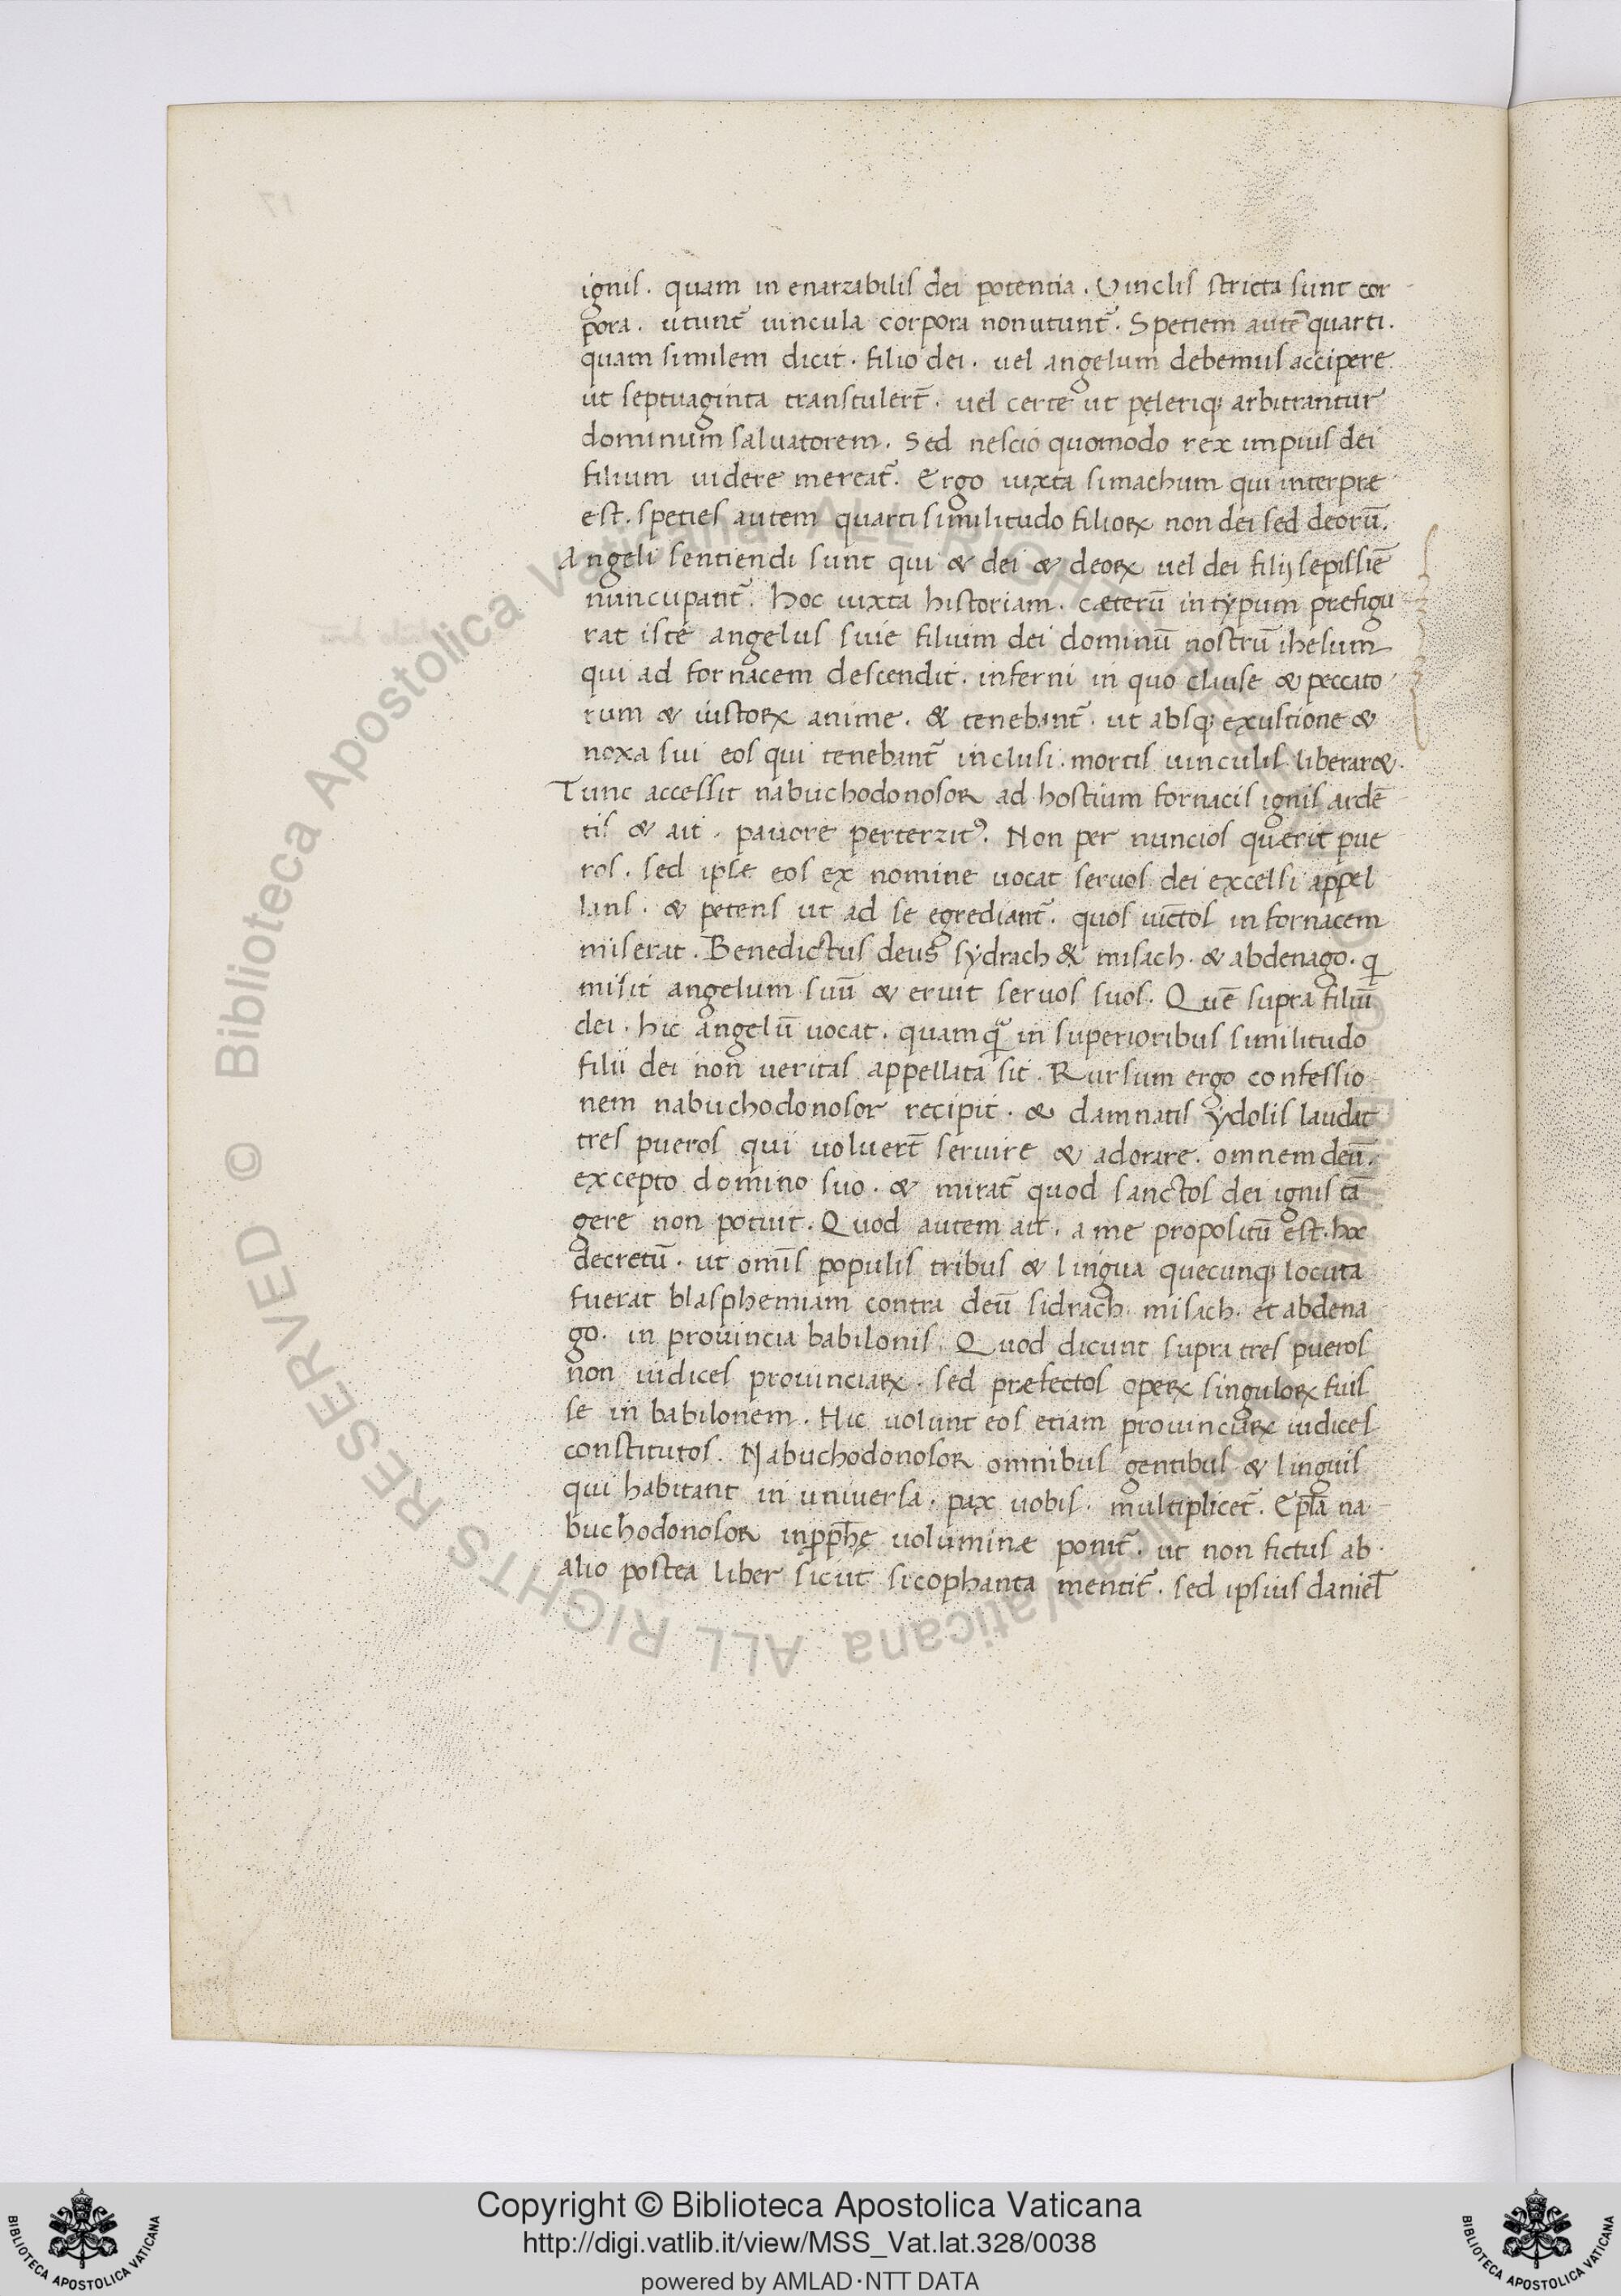 ignis. quam in enarrabilis dei potentia. Vinclis stricta sunt cor
pora. utunt̃ uincula corpora non utunt̃. Spetiem autẽ quarti.
quam similem dicit. filio dei. uel angelum debemus accipere
ut septuaginta transtulert̃. uel certe ut pęleriqꝫ arbitrantur
dominum saluatorem. Sed nescio quomodo rex impius dei
filium uidere mereat̃. Ergo iuxta simachum qui interpre
est. speties autem quarti similitudo filioꝝ non dei sed deorũ.
Angeli sentiendi sunt qui & dei & deoꝝ uel dei filij sepissiẽ
nuncupant̃. Hoc iuxta historiam. cæterũ in typum prefigu
rat iste angelus siue filium dei dominũ nostrũ ihesum
qui ad fornacem descendit. inferni in quo clause & peccato
rum & iustoꝝ anime. & tenebant̃. ut absqꝫ exustione &
noxa sui eos qui tenebant̃ inclusi. mortis uinculis liberar&.
Tunc accessit nabuchodonosoR ad hostium fornacis ignis ardẽ
tis & ait. pauore perterritꝰ. Non per nuncios quærit pue
ros. sed ipse eos ex nomine uocat seruos dei excelsi appel
lans. & petens ut ad se egrediant̃. quos uictos in fornacem
miserat. Benedictus deus sydrach & misach. & abdenago. q̃
misit angelum suũ & eruit seruos suos. Quẽ supra filiũ
dei. hic angelũ uocat. quamq̃ in superioribus similitudo
filii dei non ueritas appellata sit. Rursum ergo confessio
nem nabuchodonosor recipit. & damnatis ydolis laudat
tres pueros qui uoluert̃ seruire & adorare. omnem deũ.
excepto domino suo. & mirat̃ quod sanctos dei ignis tã
gere non potuit. Quod autem ait. a me propositũ est. hoc
decretũ. ut om̃is populis tribus & lingua quecunqꝫ locuta
fuerat blasphemiam contra deũ sidrach. misach. et abdena
go. in prouincia babilonis. Quod dicunt supra tres pueros
non iudices prouinciaꝝ. sed præfectos opeꝝ singuloꝝ fuis
se in babilonem. Hic uolunt eos etiam prouinciaꝝ iudices
constitutos. NabuchodonosoR omnibus gentibus & linguis
qui habitant in uniuersa. pax uobis. multiplicet̃. Ep̃la na
buchodonosoR in ꝓph̃ę uoluminæ ponit̃. ut non fictus ab
alio postea liber sicut sicophanta mentit̃. sed ipsius daniel̃
Copyright © Biblioteca Apostolica Vaticana
http://digi.vatlib.it/view/MSS_Vat.lat.328/0038
powered by AMLAD·NTT DATA
BIBLIOTECA APOSTOLICA VATICANA
BIBLIOTECA APOSTOLICA VATICANA
© Biblioteca Apostolica Vaticana ALL RIGHTS RESERVED